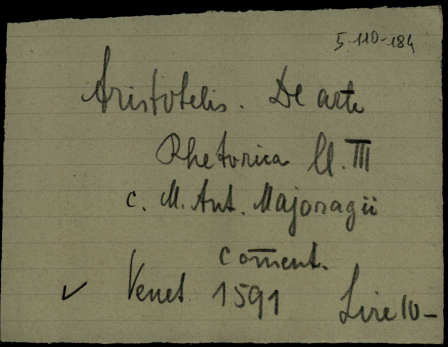 5-110-184
Aristotelis. De arte
Rhetorica ll. III
c. M. Ant. Majoragii
com̅ent.
✓ Venet 1591 Lire 10-